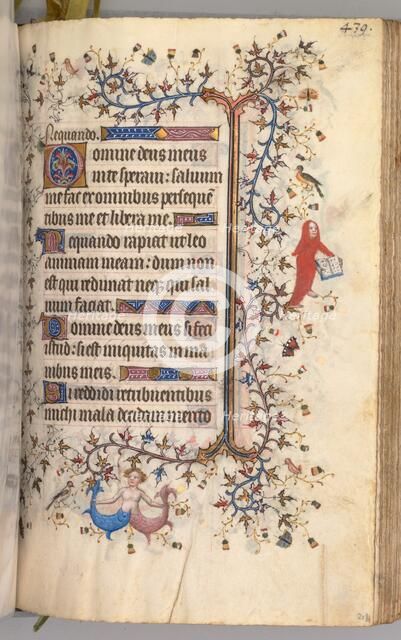 439.
Nequando.
Domine deus meus
in te speravi: salvum
me fac ex omnibus persequē
tibus me et libera me.
Nequando rapiat ut leo
animam meam: dum non
est qui redimat neqz qui sal
vum faciat.
Domine deus meus si feci
istud: si est iniquitas in ma
nibus meis.
Si reddidi retribuentibus
michi mala decidam merito
Heritage